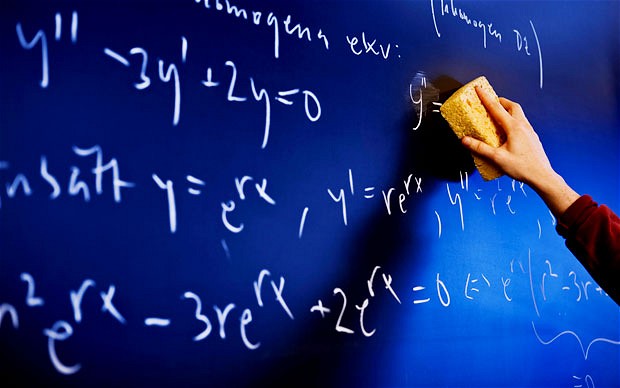 homogena ekv: (Inhomogen DE)
y'' - 3y' + 2y = 0 y'' =
Ansatt y = e^{rx}, y' = re^{rx}, y'' = r e
r^2 e^{rx} - 3re^{rx} + 2e^{rx} = 0 (=) e^{rx} (r^2 - 3r +
= 0